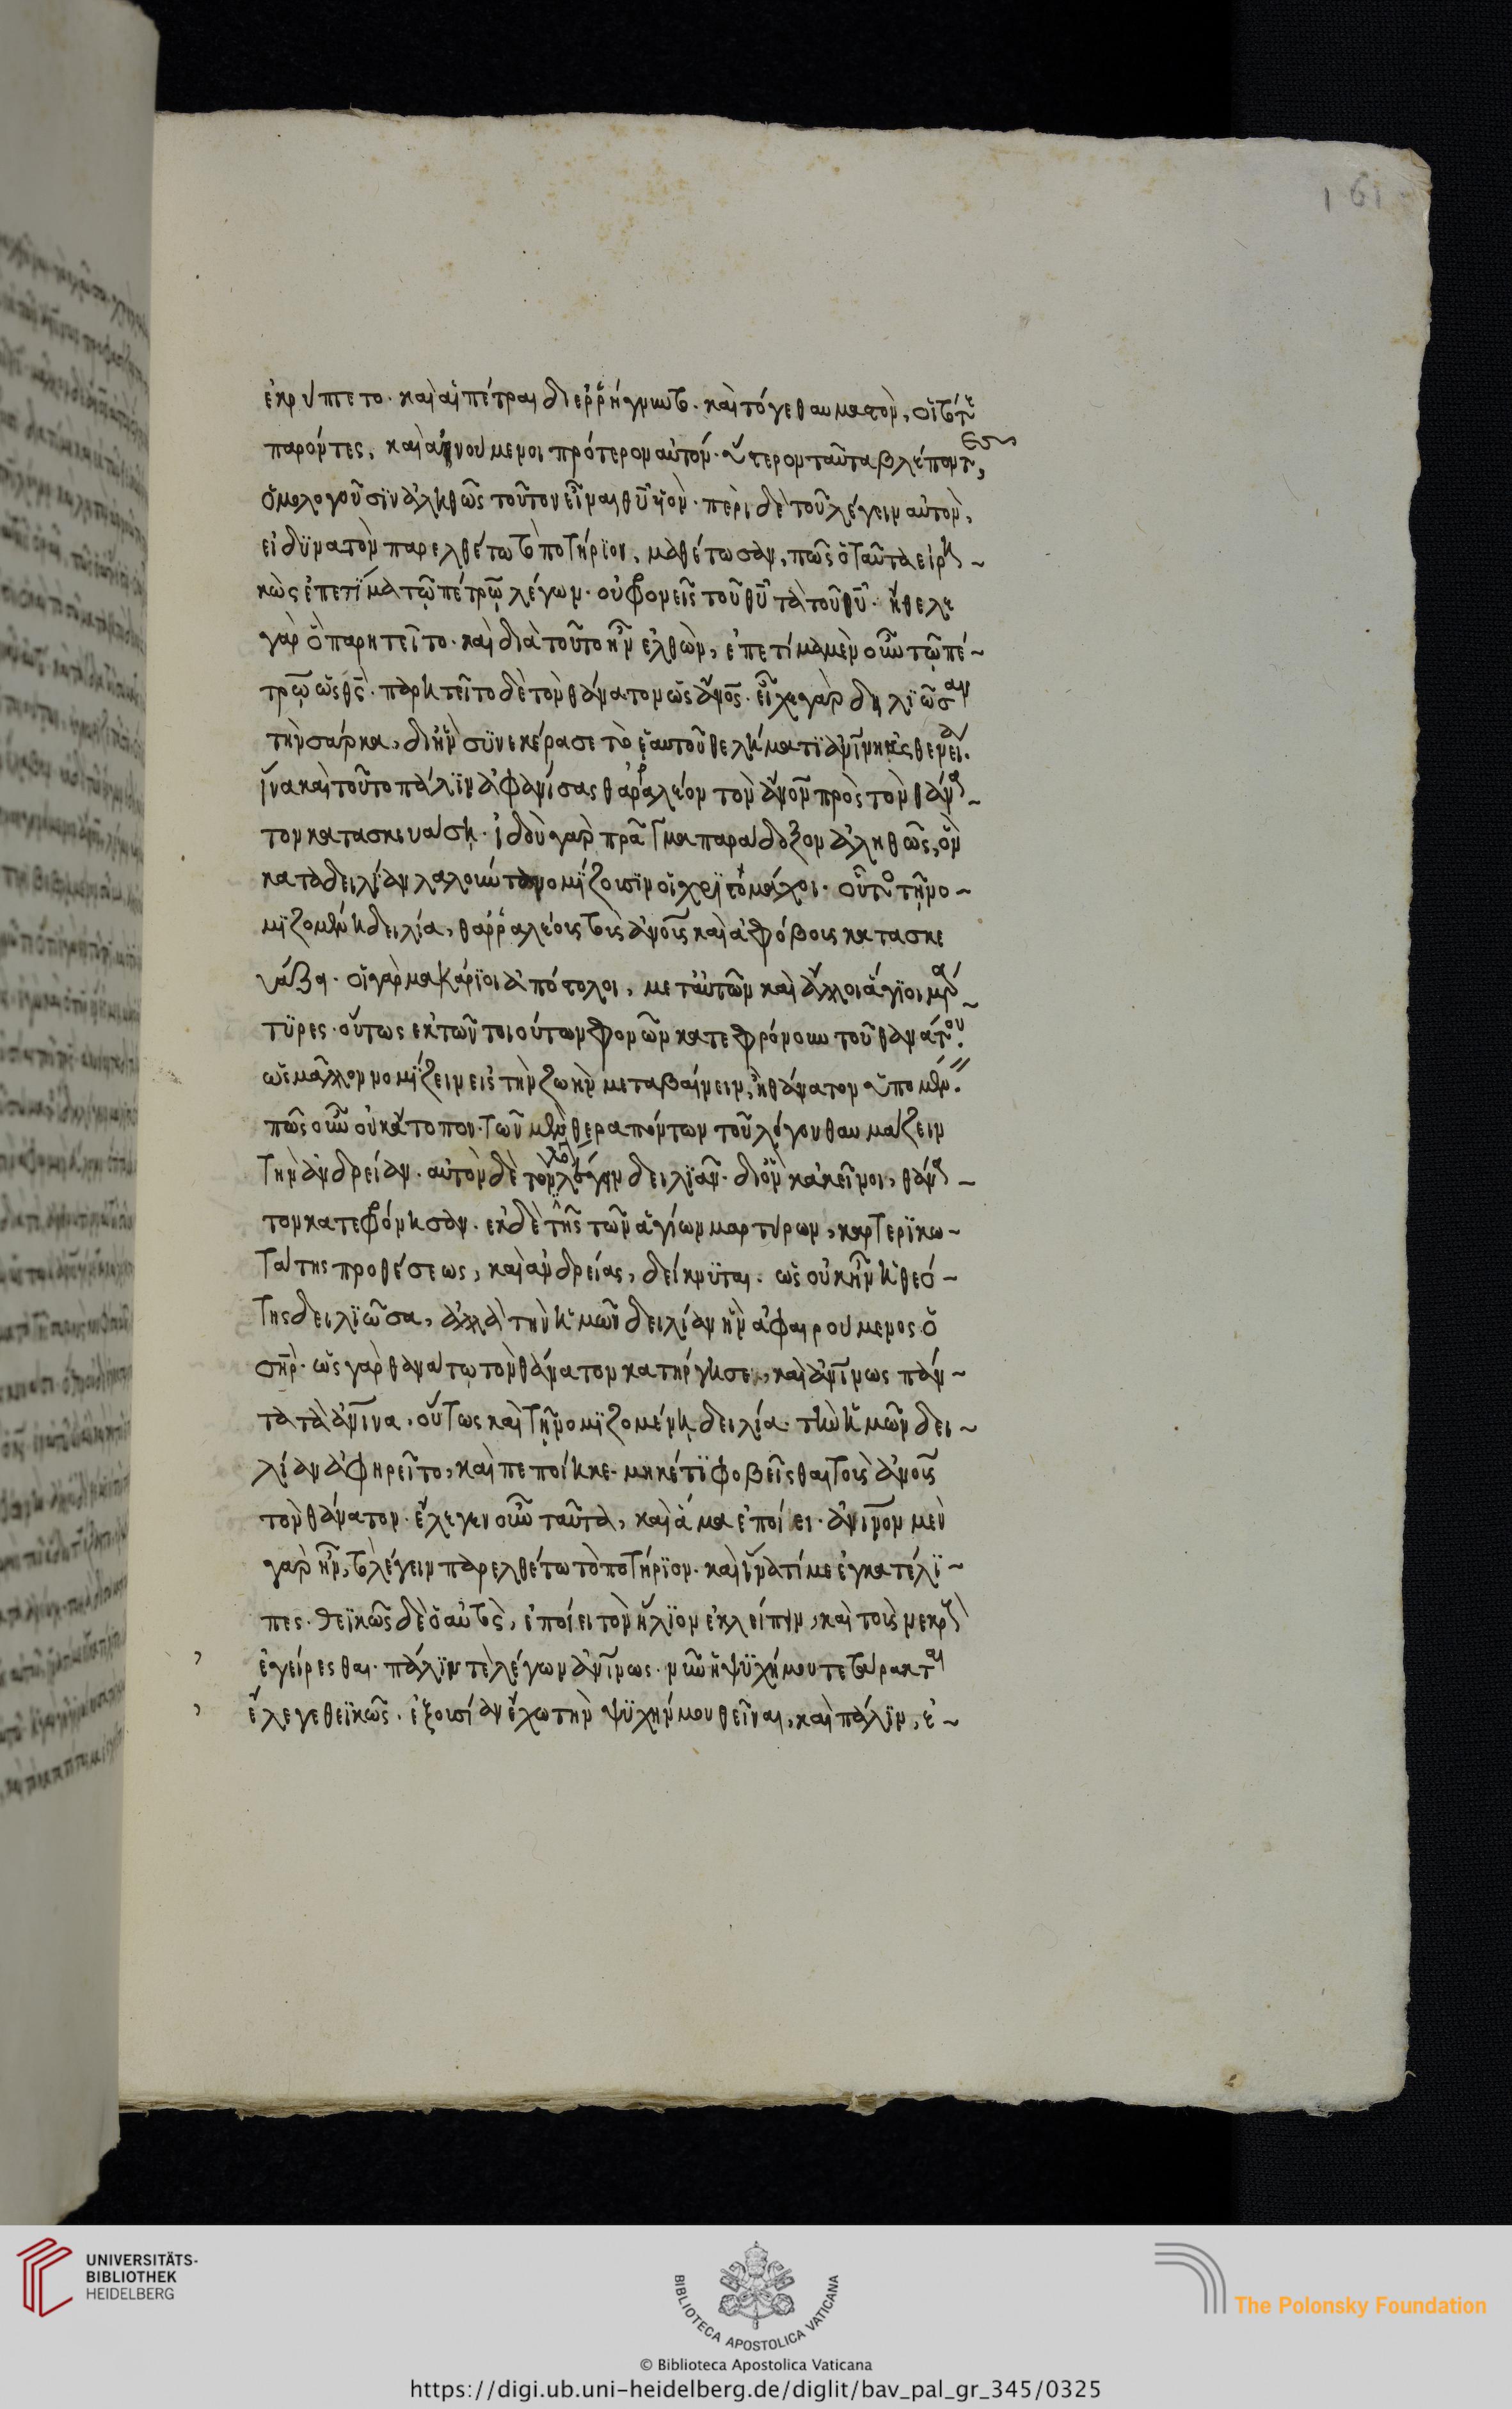 ἐκρύπτετο· καὶ αἱ πέτραι διερρήγνυντο· καὶ τό γε θαυμαστὸν, οἱ τότε
παρόντες, καὶ ἀρνούμενοι πρότερον αὐτόν· ὕστερον ταῦτα βλέποντες,
ὁμολογοῦσϊν ἀληθῶς τοῦτον εἶναι θῦ ϋἱόν· περὶ δὲ τοῦ λέγειν αὐτὸν,
εἰ δϋνατὸν παρελθέτω τὸ ποτήρϊον, μαθέτωσαν, πῶς ὁ ταῦτα εἰρη~
κὼς ἐπετίμα τῷ πέτρῳ λέγων· οὐ φρονεῖς τοῦ θῦ τὰ τοῦ θῦ· ἤθελε
γὰρ ὃ παρητεῖτο· καὶ διὰ τοῦτο ἦν ἐλθὼν, ἐπετίμα μὲν οὖν τῷ πέ~
τρῳ ὡς θς̄· παρητεῖτο δὲ τὸν θάνατον ὡς ἄνος̄· εἶχε γὰρ δειλϊῶσαν
τὴν σάρκα, δι' ἣν σϋνεκέρασε τὸ ἑαυτοῦ θελήματϊ ἀνΐνη ἀσθενεία·
ἵνα καὶ τοῦτο πάλϊν ἀφανίσας θαρραλέον τὸν ἄνον̄ πρὸς τὸν θάνα~
τον κατασκευάση· ἰδοὺ γὰρ πρᾶγμα παράδοξον ἀληθῶς, ὃν
κατὰ δειλίαν λαλοῦντα νομΐζουσϊν οἱ χρϊστομάχοι· οὗτος τῆ νο~
μϊζομένη δειλία, θαρραλέους τοὺς ἀνους̄ καὶ ἀφόβους κατασκε
υάζει· οἱ γὰρ μακάρϊοι ἀπόστολοι, μετ' αὐτῶν καὶ ἄλλοι ἅγϊοι μάρ~
τϋρες· οὕτως ἐκ τῶν τοιούτων φωνῶν κατεφρόνουν τοῦ θανάτου·
ὡς μᾶλλον νομΐζειν εἰς τὴν ζωὴν μεταβαίνειν, ἢ θάνατον ὑπομένειν·
πῶς οὖν οὐκ ἄτοπον· τῶν μὲν θεραπόντων τοῦ λόγου θαυμάζειν
τὴν ἀνδρείαν· αὐτὸν δὲ τὸν λόγον λέγειν δειλϊᾶν· δι' ὃν κἀκεῖνοι, θάνα~
του κατεφρόνησαν· ἐκ δὲ τῆς τῶν ἁγίων μαρτύρων, καρτερϊκω~
τάτης προθέσεως, καὶ ἀνδρείας, δείκνϋται· ὡς οὐκ ἦν ἡ θεό~
της δειλϊῶσα, ἀλλὰ τὴν ἡμῶν δειλίαν ἦν ἀφαιρούμενος ὁ
σηρ̄· ὡς γὰρ θανάτω τὸν θάνατον κατήργησε, καὶ ἀνΐνως πάν~
τα τὰ ἀνΐνα· οὕτως καὶ τῆ νομϊζομένη δειλία· τὴν ἡμῶν δει~
λίαν ἀφηρεῖτο, καὶ πεποίηκε· μηκέτϊ φοβεῖσθαι τοὺς ἀνους̄
τὸν θάνατον· ἔλεγεν οὖν ταῦτα, καὶ ἅμα ἐποίει· ἀνΐνον μὲν
γὰρ ἦν, τὸ λέγειν παρελθέτω τὸ ποτήρϊον· καὶ ἵνα τί με ἐγκατέλϊ~
πες· θεϊκῶς δὲ ὁ αὐτὸς, ἐποίει τὸν ἥλϊον ἐκλείπειν, καὶ τοὺς νεκροὺς
ἐγείρεσθαι· πάλϊν τε λέγων ἀνΐνως· νῦν ἡ ψϋχή μου τετάρακται
ἔλεγε θεϊκῶς· ἐξουσίαν ἔχω τὴν ψϋχήν μου θεῖναι, καὶ πάλϊν, ἐ~
161
UNIVERSITÄTS-
BIBLIOTHEK
HEIDELBERG
BIBLIOTECA APOSTOLICA VATICANA
The Polonsky Foundation
© Biblioteca Apostolica Vaticana
https://digi.ub.uni-heidelberg.de/diglit/bav_pal_gr_345/0325